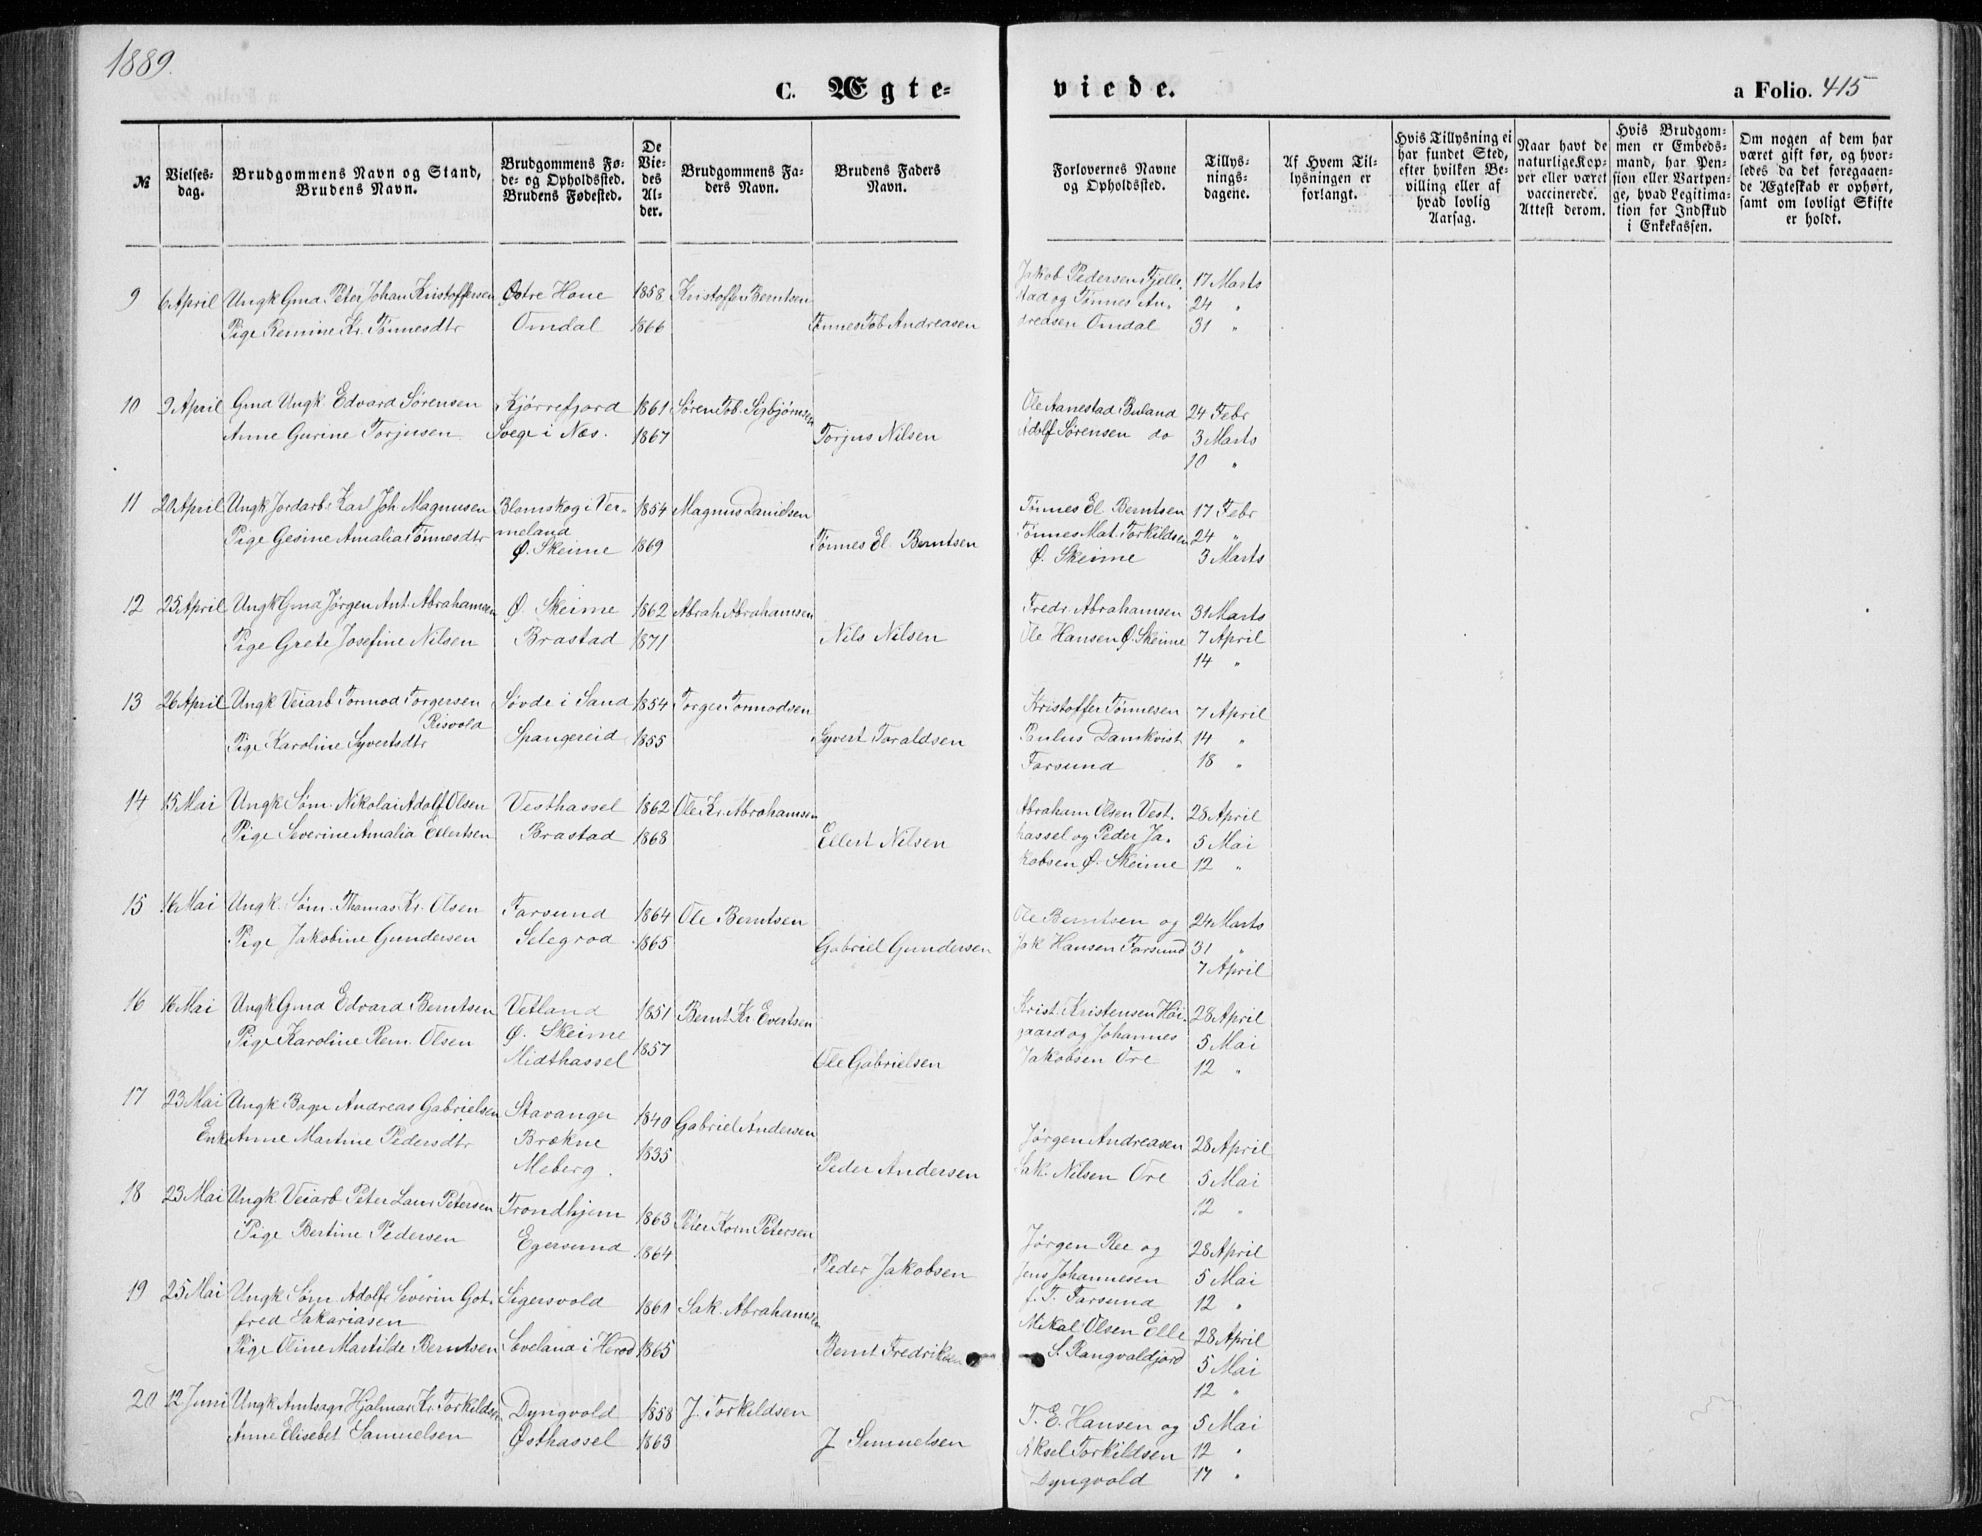 1889.
C. Ægte-
viede.
a Folio. 415
№
Vielses-
dag.
Brudgommens Navn og Stand,
Brudens Navn.
Brudgommens Fø-
de- og Opholdssted.
Brudens Fødested.
De
Vie-
des
Al-
der.
Brudgommens Fa-
ders Navn.
Brudens Faders
Navn.
Forlovernes Navne
og Opholdssted.
Tillys-
nings-
dagene.
Af Hvem Til-
lysningen er
forlangt.
Hvis Tillysning ei
har fundet Sted,
efter hvilken Be-
villing eller af
hvad lovlig
Aarsag.
Naar havt de
naturlige Kop-
per eller været
vaccinerede.
Attest derom.
Hvis Brudgom-
men er Embeds-
mand, har Pen-
sion eller Vartpen-
ge, hvad Legitima-
tion for Indskud
i Enkekassen.
Om nogen af dem har
været gift før, og hvor-
ledes da det foregaaen-
de Ægteskab er ophørt,
samt om lovligt Skifte
er holdt.
9 6 April Ungk Gmd. Peter Johan Kristoffersen Østre Hone 1858 Kristoffer Berntsen Jakob Pedersen Fjelle- 17 Marts
stad og Tønnes An- 24 "
Pige Remine Kr. Tønnesdtr Omdal 1866 Tønnes Tob Andreasen dreasen Omdal 31 "
10 9 April Gmd Ungk. Edvard Sørensen Kjørrefjord 1861 Søren Tob. Sigbjørnsen Ole Aanestad Buland 24 Febr
Anne Gurine Torjusen Svege i Næs. 1867 Torjus Nilsen Adolf Sørensen do 3 Marts
10 "
11 20 April Ungk Jordarb. Karl Joh Magnusen Blomskog i Ver- 1854 Magnus Danielsen Tønnes El Berntsen 17 Febr
Pige Gesine Amalia Tønnesdtr meland Tønnes Mat. Torkildsen 24 "
Ø. Skeime 1869 Tønnes El. Berntsen Ø. Skeime 3 Marts
12 25 April Ungk Gmd Jørgen Ant. Abrahamsen Ø. Skeime 1862 Abrah Abrahamsen Fredr. Abrahamsen 31 Marts
Pige Grete Josefine Nilsen Brastad 1871 Nils Nilsen Ole Hansen Ø. Skeime 7 April
14 "
13 26 April Ungk Veiarb Tormod Torgersen Søvde i Sand 1854 Torger Tormodsen Kristoffer Tønnesen 7 April
Risvold
Pige Karoline Syvertsdtr Spangereid 1855 Syvert Toraldsen Paulus Damkvist 14 "
Farsund 18 "
14 15 Mai Ungk Søm. Nikolai Adolf Olsen Vesthassel 1862 Ole Kr. Abrahamsen Abraham Olsen Vest- 28 April
Pige Severine Amalia Ellertsen Brastad 1868 Ellert Nilsen hassel og Peder Ja- 5 Mai
kobsen Ø. Skeime 12 "
15 16 Mai Ungk. Søm. Thomas Kr. Olsen Farsund 1864 Ole Berntsen Ole Berntsen og 24 Marts
Pige Jakobine Gundersen Selegrod 1865 Gabriel Gundersen Jak Hansen Farsund 31 "
7 April
16 16 Mai Ungk Gmd Edvard Berntsen Vetland 1851 Bernt Kr. Evertsen Krist. Kristensen Høi- 28 April
Pige Karoline Rem. Olsen Ø. Skeime gaard og Johannes 5 Mai
Midthassel 1857 Ole Gabrielsen Jakobsen Ore 12 "
17 23 Mai Ungk Bager Andreas Gabrielsen Stavanger 1840 Gabriel Andersen Jørgen Andreasen 28 April
Enke Anne Martine Pedersdtr Brekne Sak. Nilsen Ore 5 Mai
Meberg. 1835 Peder Andersen 12 "
18 23 Mai Ungk. Veiarb Peter Laur Petersen Trondhjem 1863 Peter Korn Petersen Jørgen Ree og 28 April
Pige Bertine Pedersen Egersund 1864 Peder Jakobsen Jens Johannesen 5 Mai
f. T. Farsund 12 "
19 25 Mai Ungk Søm. Adolf Severin Got- Sigersvold 1861 Sak. Abrahamsen Mikal Olsen Elle 28 April
fred Sakariasen
Pige Oline Martilde Berntsen Loveland i Herod 1865 Bernt Fredriksen S. Rangvaldjord 5 Mai
12 "
20 12 Juni Ungk Amtsagr Hjalmar Kr. Torkildsen Dyngvold 1858 J. Torkildsen T. E. Hansen og 5 Mai
Anne Elisebet Samuelsen Østhassel 1863 J Samuelsen Aksel Torkildsen 12 "
Dyngvold 17 "